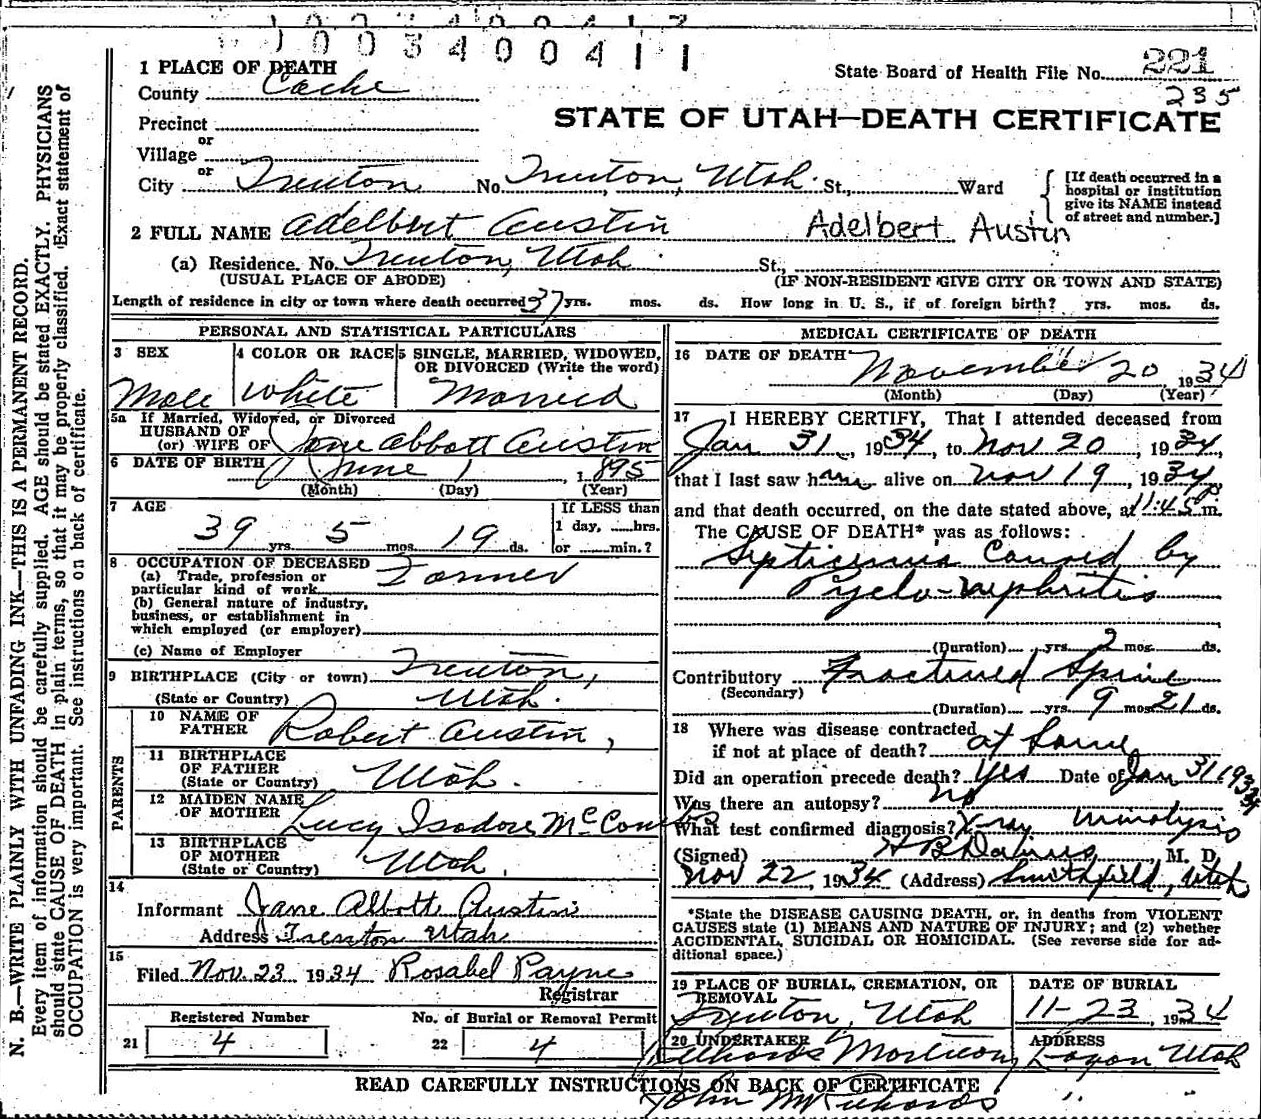 1003400417
1003400411
1 PLACE OF DEATH
State Board of Health File No. 221
County Cache
235
STATE OF UTAH—DEATH CERTIFICATE
Precinct
or
Village
or
City Trenton No. Trenton, Utah. St., Ward
[If death occurred in a hospital or institution give its NAME instead of street and number.]
2 FULL NAME Adelbert Austin Adelbert Austin
(a) Residence. No. Trenton, Utah. St.,
(USUAL PLACE OF ABODE) (IF NON-RESIDENT GIVE CITY OR TOWN AND STATE)
Length of residence in city or town where death occurred 37 yrs. mos. ds. How long in U. S., if of foreign birth? yrs. mos. ds.
PERSONAL AND STATISTICAL PARTICULARS
3 SEX 4 COLOR OR RACE 5 SINGLE, MARRIED, WIDOWED,
OR DIVORCED (Write the word)
Male White Married
5a If Married, Widowed, or Divorced
HUSBAND OF
(or) WIFE OF Jane Abbott Austin
6 DATE OF BIRTH June 1, 1895
(Month) (Day) (Year)
7 AGE
39 yrs. 5 mos. 19 ds.
If LESS than
1 day, hrs.
or min.?
8 OCCUPATION OF DECEASED
(a) Trade, profession or
particular kind of work Farmer
(b) General nature of industry,
business, or establishment in
which employed (or employer)
(c) Name of Employer
9 BIRTHPLACE (City or town) Trenton,
(State or Country) Utah.
PARENTS
10 NAME OF
FATHER Robert Austin,
11 BIRTHPLACE
OF FATHER
(State or Country) Utah.
12 MAIDEN NAME
OF MOTHER Lucy Isadore McCombs
13 BIRTHPLACE
OF MOTHER
(State or Country) Utah.
14
Informant Jane Abbott Austin
Address Trenton Utah
15
Filed Nov. 23 1934 Rosabel Payne
Registrar
Registered Number No. of Burial or Removal Permit
21 4 22 4
MEDICAL CERTIFICATE OF DEATH
16 DATE OF DEATH November 20 1934
(Month) (Day) (Year)
17 I HEREBY CERTIFY, That I attended deceased from
Jan 31, 1934, to Nov 20, 1934,
that I last saw him alive on Nov 19, 1934,
and that death occurred, on the date stated above, at 11:45 p m.
The CAUSE OF DEATH* was as follows:
Septicemia Caused by
Pyelo-nephritis
(Duration) yrs. 2 mos. ds.
Contributory Fractured Spine
(Secondary)
(Duration) yrs. 9 mos. 21 ds.
18 Where was disease contracted
if not at place of death? at home
Did an operation precede death? Yes Date of Jan 31 1934
Was there an autopsy? no
What test confirmed diagnosis? X-ray Urinalysis
(Signed) M. D.
Nov 22, 1934 (Address) Smithfield, Utah
*State the DISEASE CAUSING DEATH, or, in deaths from VIOLENT
CAUSES state (1) MEANS AND NATURE OF INJURY; and (2) whether
ACCIDENTAL, SUICIDAL OR HOMICIDAL. (See reverse side for ad-
ditional space.)
19 PLACE OF BURIAL, CREMATION, OR
REMOVAL
Trenton, Utah
DATE OF BURIAL
11-23, 1934
20 UNDERTAKER
Richards Mortuary
ADDRESS
Logan Utah
READ CAREFULLY INSTRUCTIONS ON BACK OF CERTIFICATE
John Richards
N. B.—WRITE PLAINLY WITH UNFADING INK—THIS IS A PERMANENT RECORD.
Every item of information should be carefully supplied. AGE should be stated EXACTLY. PHYSICIANS
should state CAUSE OF DEATH in plain terms, so that it may be properly classified. Exact statement of
OCCUPATION is very important. See instructions on back of certificate.